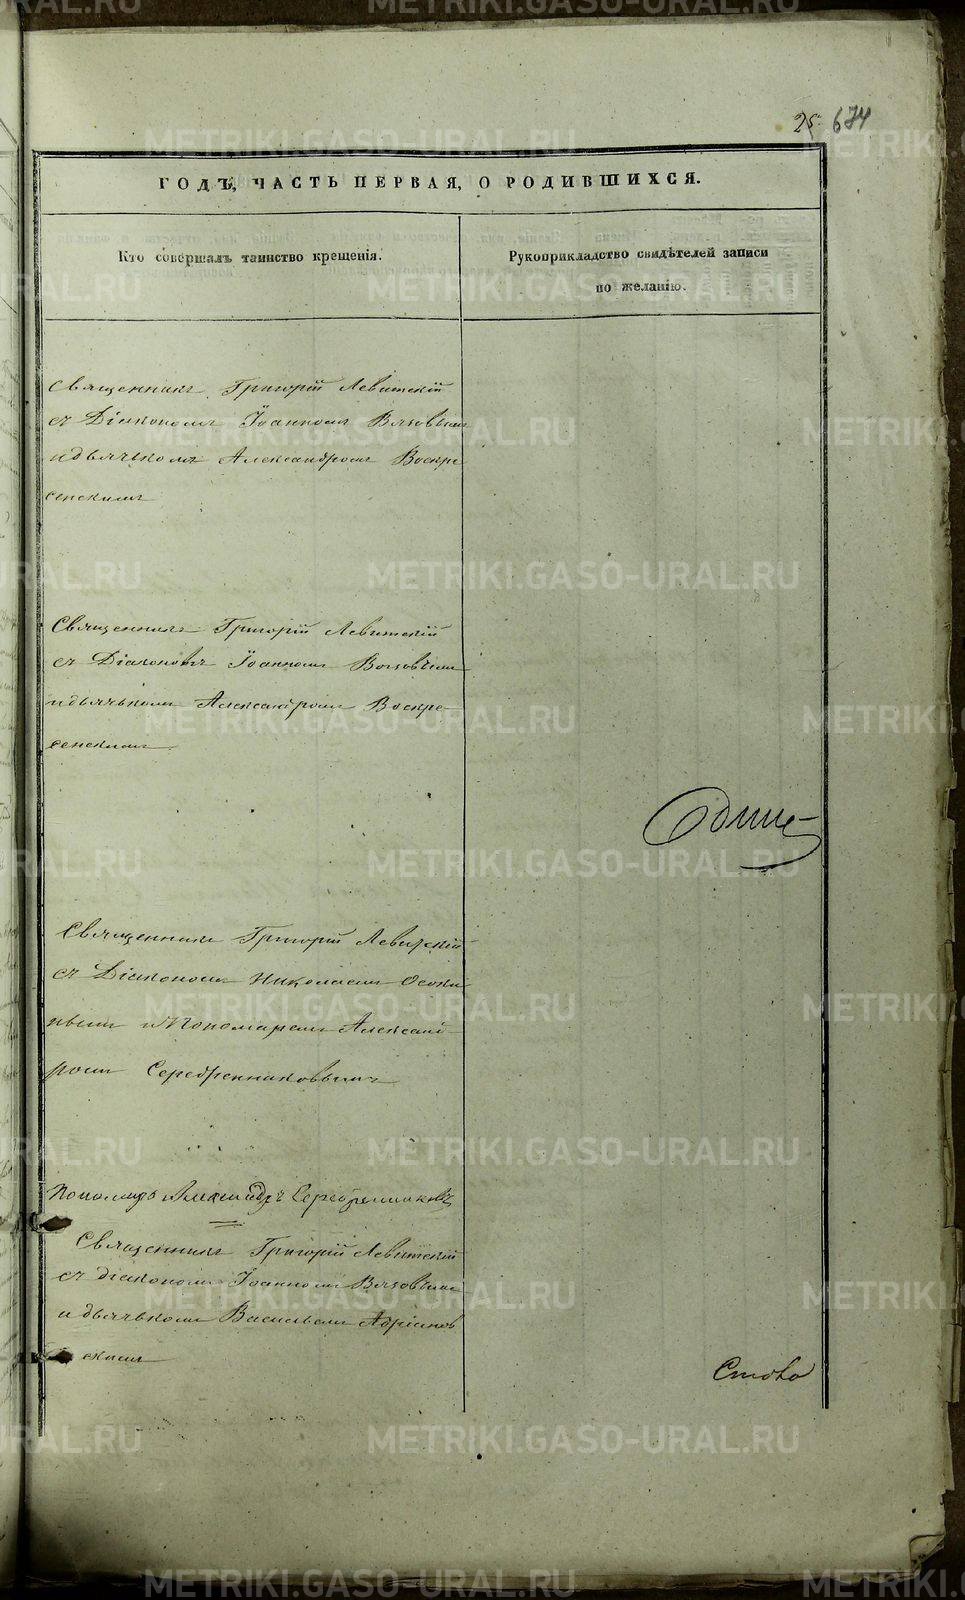 25. 674
ГОДЪ, ЧАСТЬ ПЕРВАЯ, О РОДИВШИХСЯ.
Кто совершалъ таинство крещенія.
Рукоприкладство свидѣтелей записи
по желанію.
Священникъ Григорій Левитскій
съ Діакономъ Іоанномъ Вязовымъ
и дьячькомъ Александромъ Воскре
сенскимъ
Священникъ Григорій Левитскій
съ Діакономъ Іоанномъ Вязовымъ
и дьячькомъ Александромъ Воскре-
сенскимъ
Одинъ
Священникъ Григорій Левитскій
съ Діакономъ Николаемъ Осоки
нымъ и Пономаремъ Александ
ромъ Серебренниковымъ
Пономарь Александръ Серебренниковъ
Священникъ Григорій Левитскій
съ діакономъ Іоанномъ Вязовымъ
и дьячькомъ Василіемъ Адріанов
скимъ
METRIKI.GASO-URAL.RU